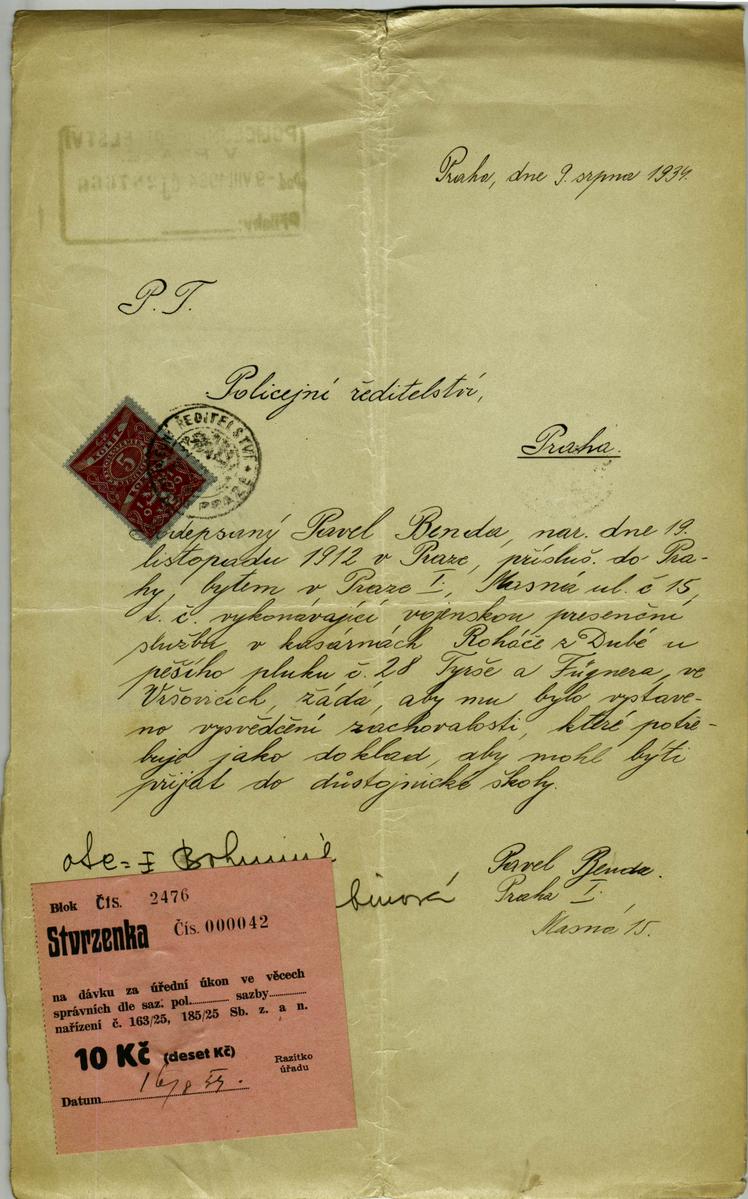 Praha, dne 9. srpna 1934.
P. T.
Policejní ředitelství,
Praha.
5
ŘEDITELSTVÍ
PRAZE
Podepsaný Pavel Benda, nar. dne 19.
listopadu 1912 v Praze, přísluš. do Pra-
hy, bytem v Praze I., Masná ul. č 15,
t. č. vykonávající vojenskou presenční
službu v kasárnách Roháče z Dubé u
pěšího pluku č. 28 Tyrše a Fügnera, ve
Vršovicích, žádá, aby mu bylo vystave-
no vysvědčení zachovalosti, které potře-
buje jako doklad, aby mohl býti
přijat do důstojnické školy.
Pavel Benda.
Praha I.
Masná 15.
otec = I
Blok Čís. 2476
Stvrzenka Čís. 000042
na dávku za úřední úkon ve věcech
správních dle saz. pol. sazby
nařízení č. 163/25, 185/25 Sb. z. a n.
10 Kč (deset Kč)
Razítko
úřadu
Datum